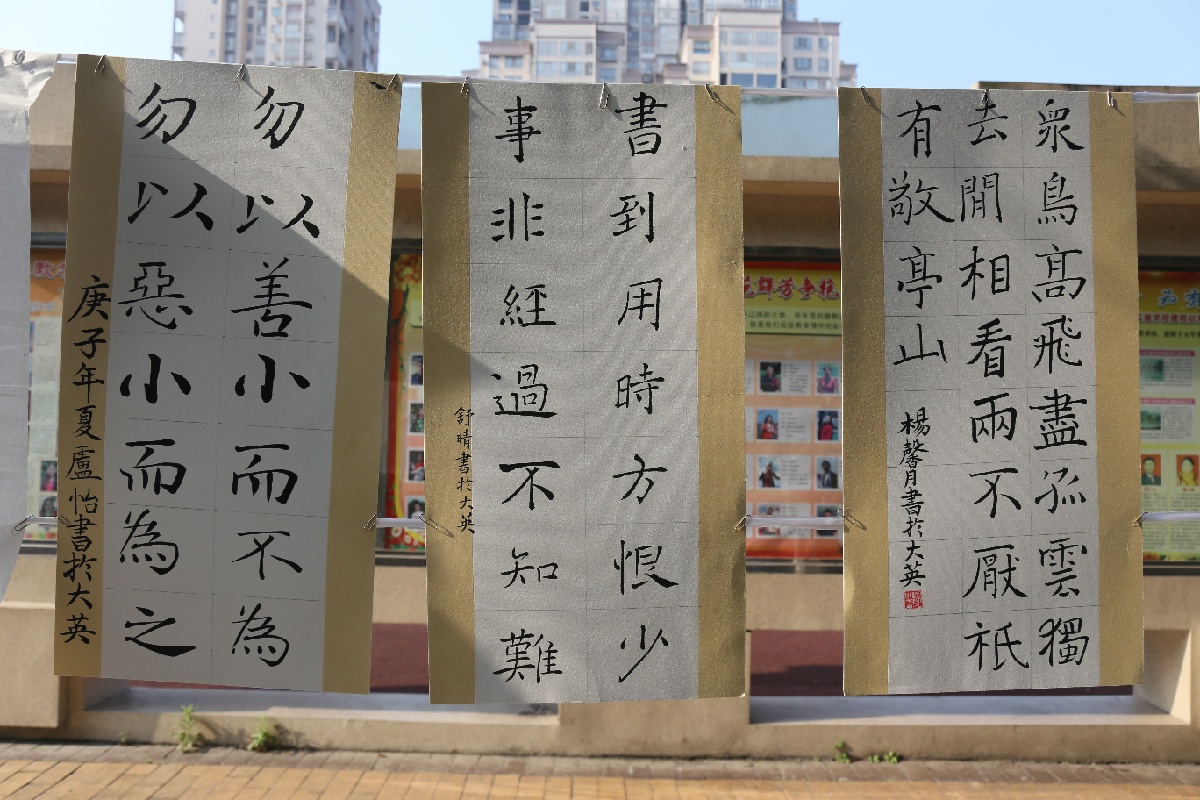 眾鳥高飛盡孤雲獨
去閒相看兩不厭祇
有敬亭山
楊馨月書於大英
書到用時方恨少
事非經過不知難
舒晴書於大英
勿以善小而不為
勿以惡小而為之
庚子年夏盧怡書於大英